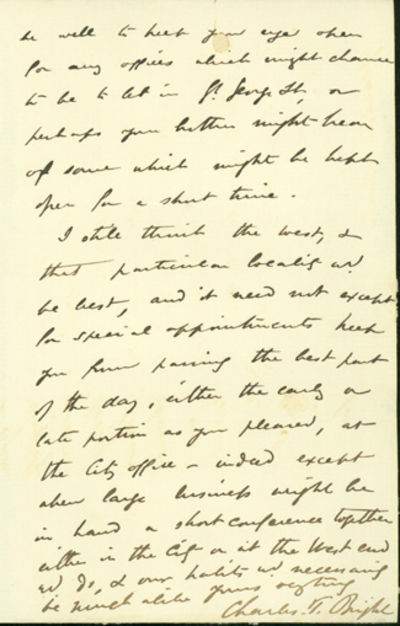 be well to keep your eye open
for any offices which might chance
to be to let in Gt. George St, or
perhaps your brother might hear
of some which might be kept
open for a short time.
I still think the west, &
that particular locality wd
be best, and it need not except
for special appointments keep
you from passing the best part
of the day, either the early or
late portion as you pleased, at
the City office – indeed except
when large business might be
in hand a short conference together
either in the City or at the West end
wd do, & our habits wd necessarily
be much alike yours
Charles. T. Bright